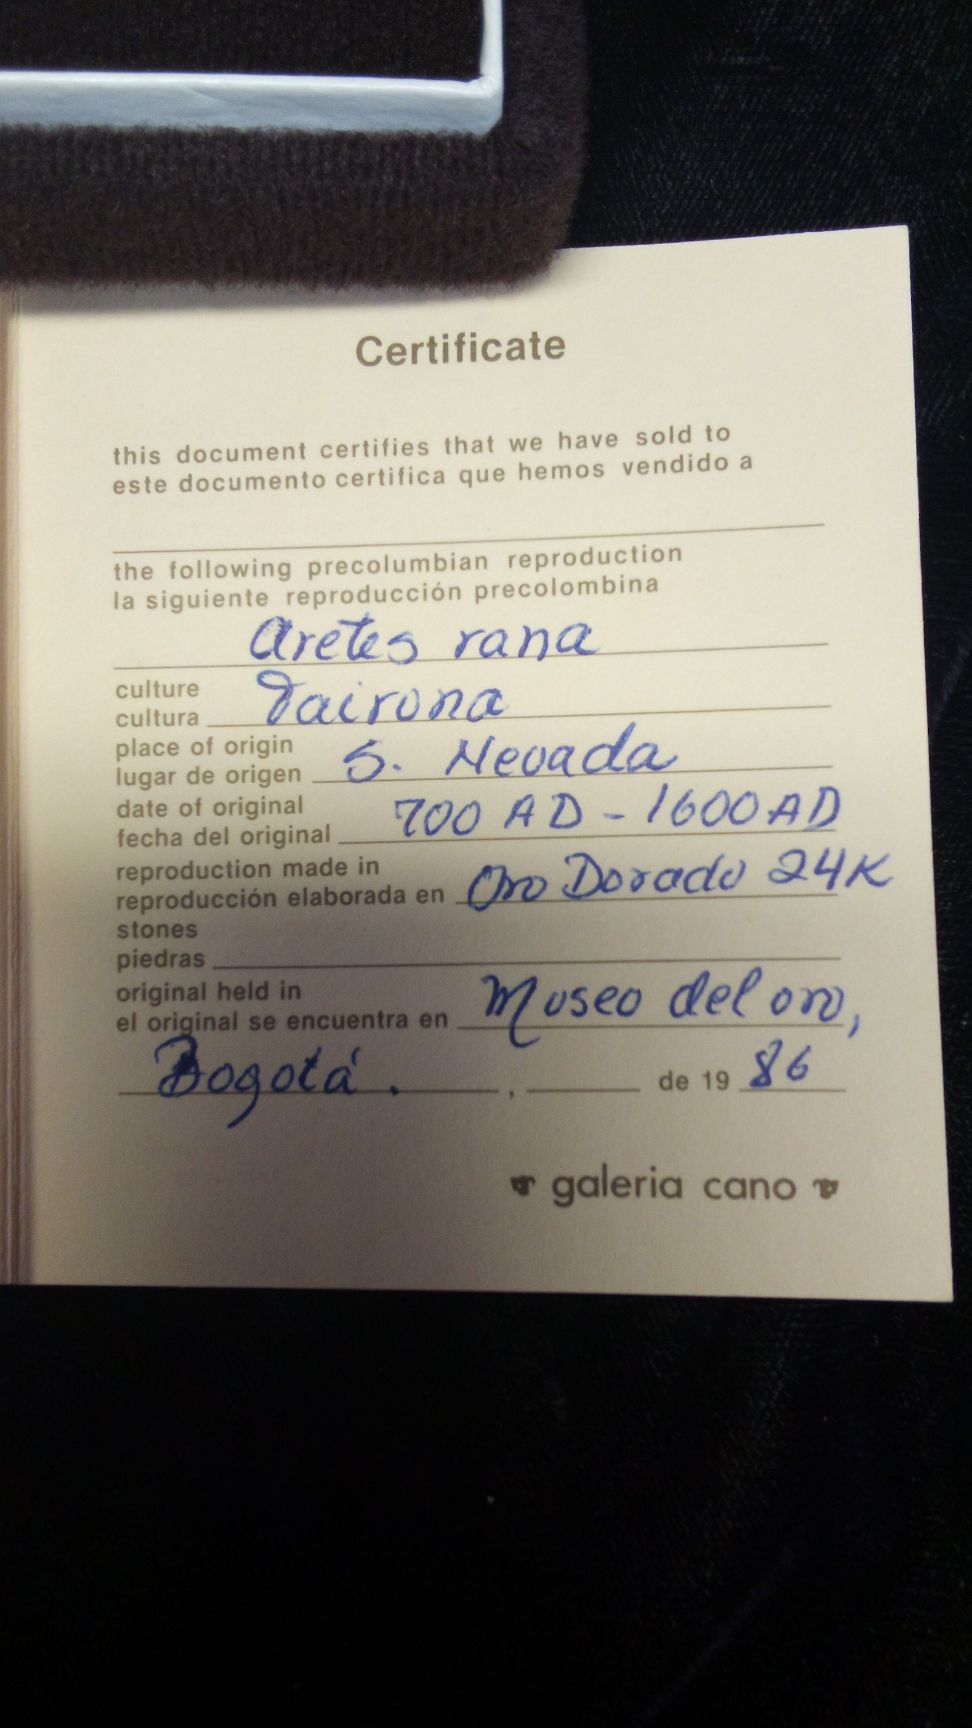 Certificate
this document certifies that we have sold to
este documento certifica que hemos vendido a
the following precolumbian reproduction
la siguiente reproducción precolombina
Aretes rana
culture
cultura Tairona
place of origin
lugar de origen S. Nevada
date of original
fecha del original 700 AD - 1600 AD
reproduction made in
reproducción elaborada en Oro Dorado 24K
stones
piedras
original held in
el original se encuentra en Museo del oro,
Bogotá. , de 19 86
galeria cano